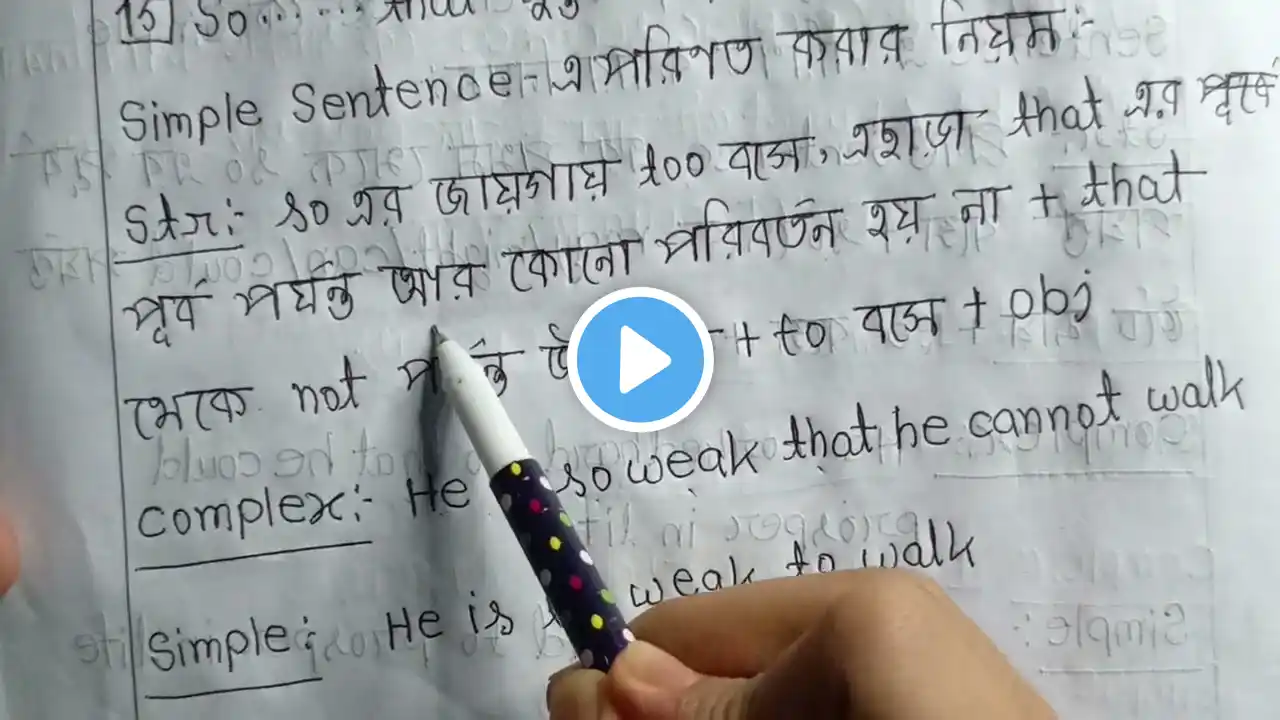 15] So...... that
Simple Sentence-এ পরিণত করার নিয়ম:-
Str:- so এর জায়গায় too বসে, এছাড়া that এর পূর্বে
পূর্ব পর্যন্ত আর কোনো পরিবর্তন হয় না + that
থেকে not + to বসে + obj
complex:- He so weak that he cannot walk
Simple:- He is weak to walk